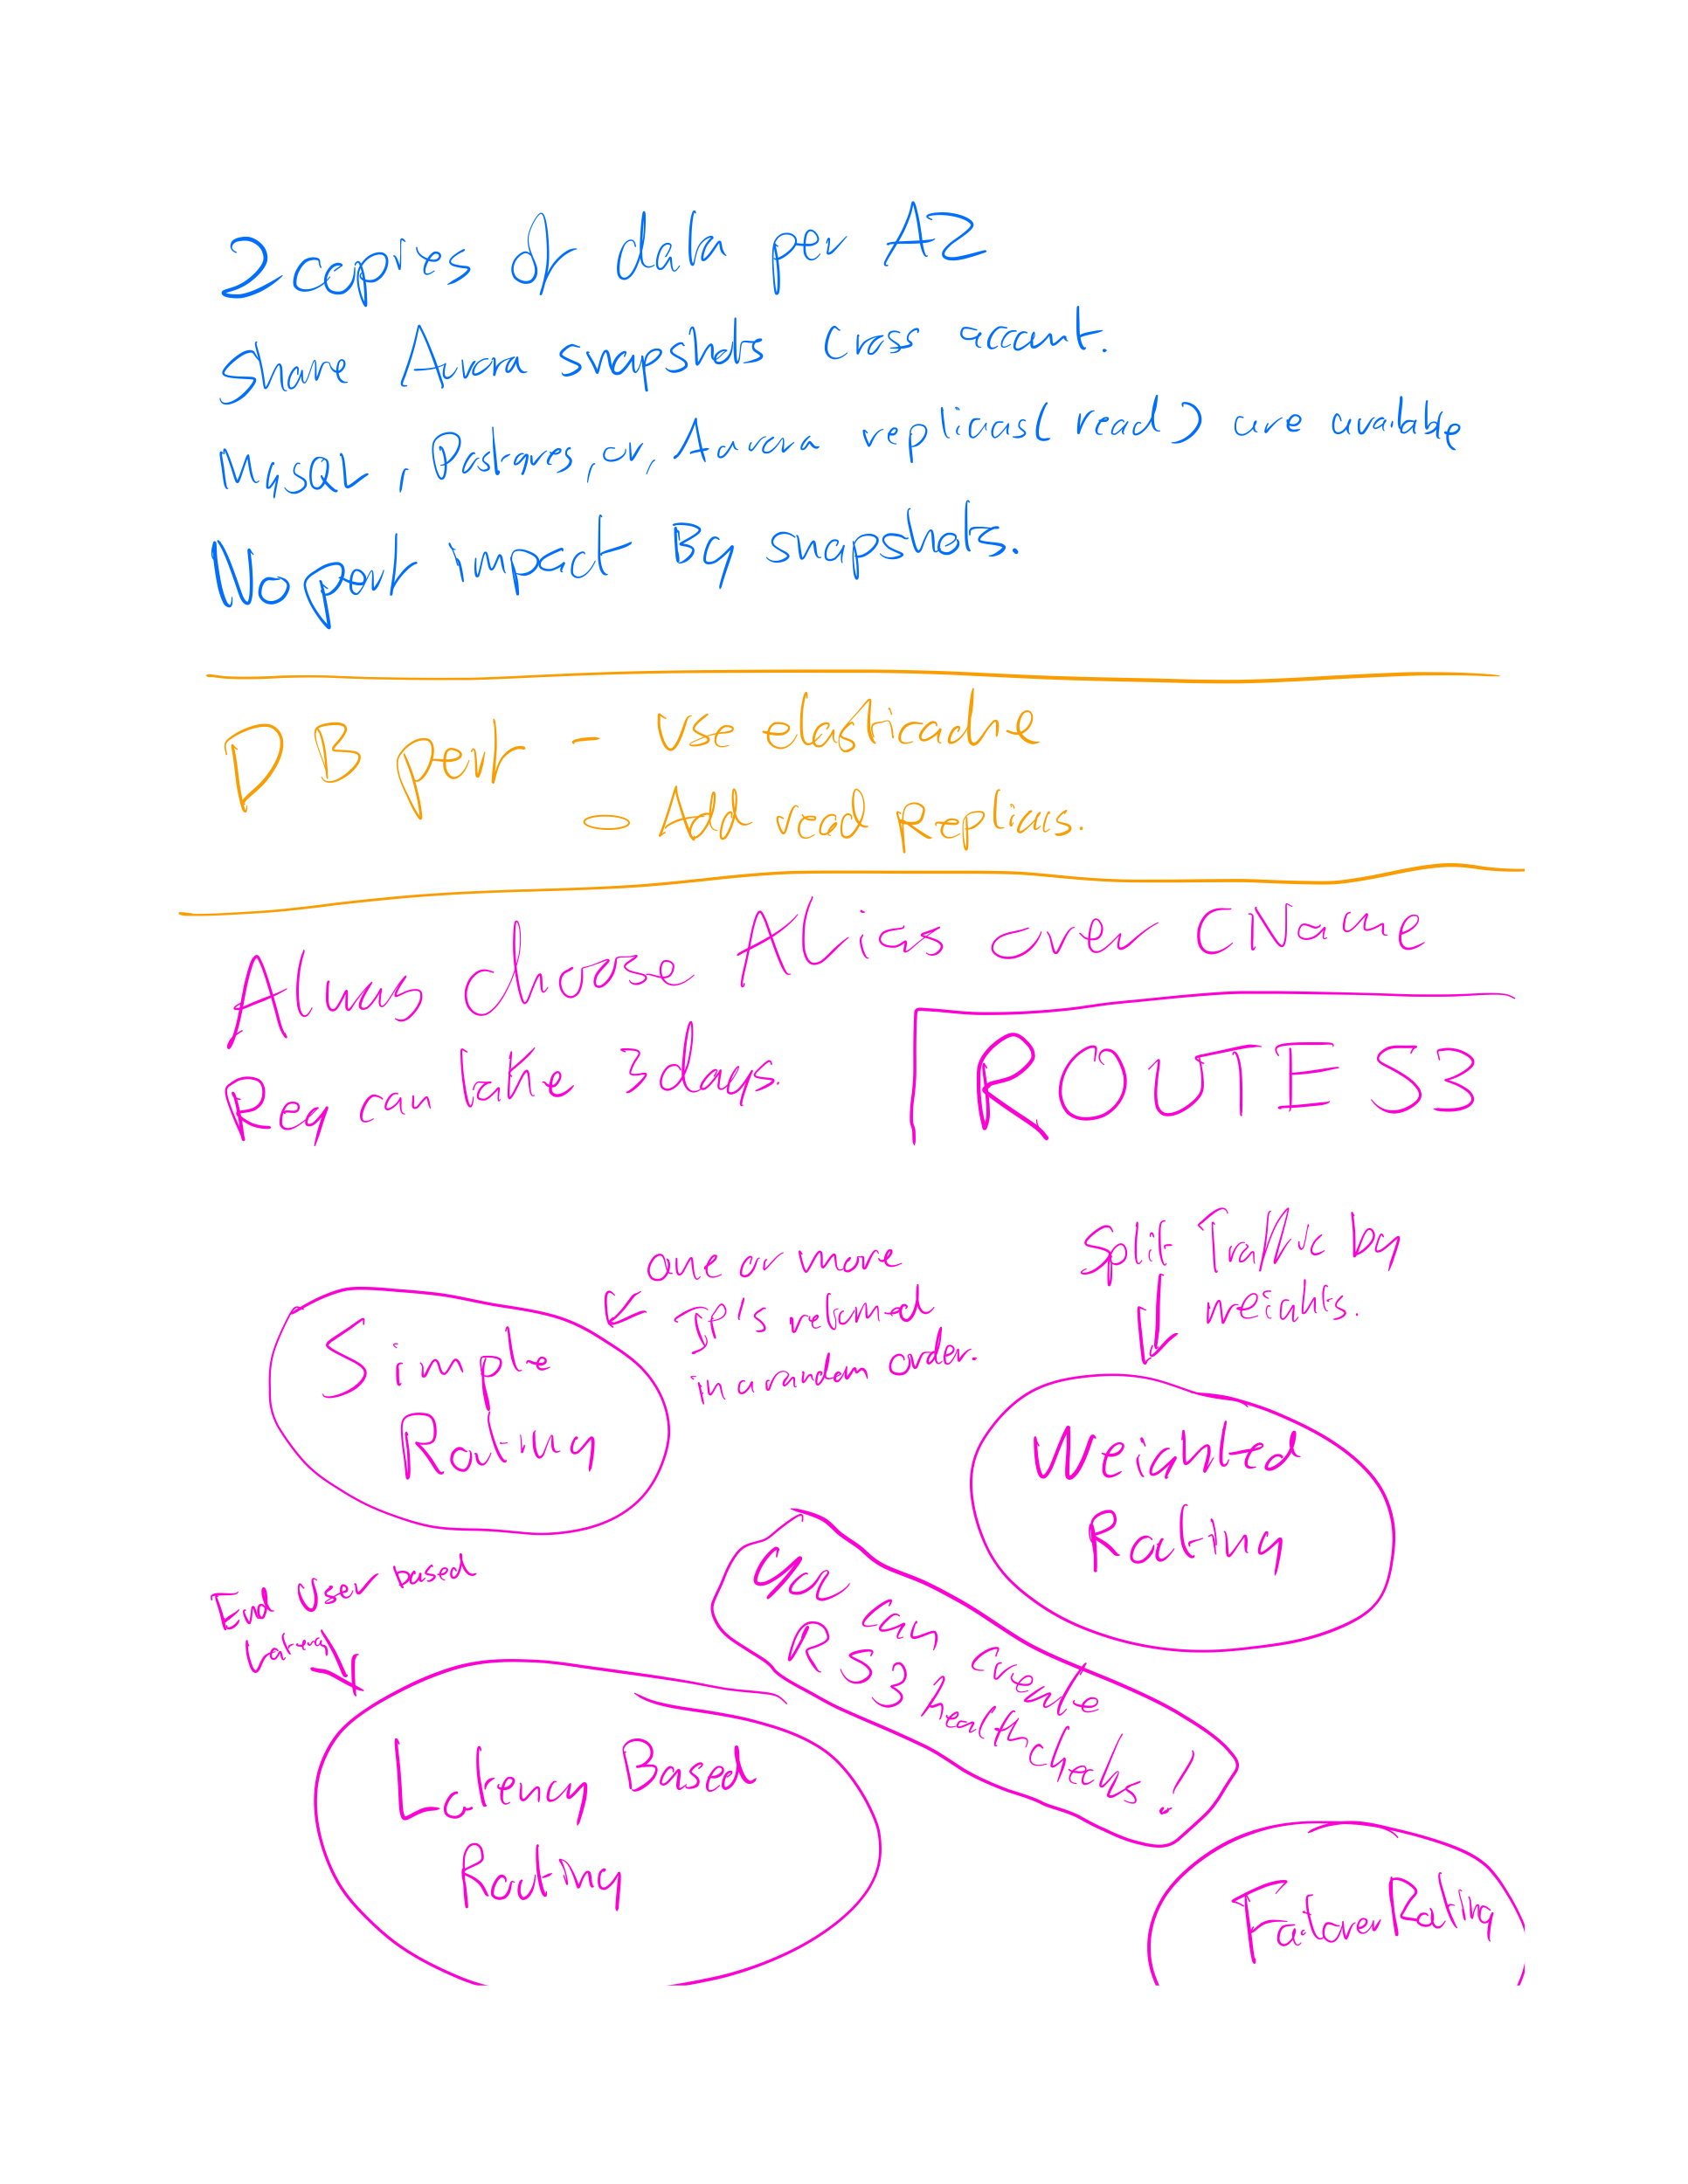 2 copies of data per AZ
Share Aurora snapshots cross account.
MySQL, Postgres, or, Aurora replicas (read) are available
No perf impact By snapshots.
DB perf - use elasticache
- Add read Replicas.
Always choose Alias over CName
Reg can take 3 days.
ROUTE 53
one or more
IP's returned
in a random order.
Simple
Routing
Split Traffic by
weights.
Weighted
Routing
You can create
R53 healthchecks!
End User based
Latency
Latency Based
Routing
Failover Routing